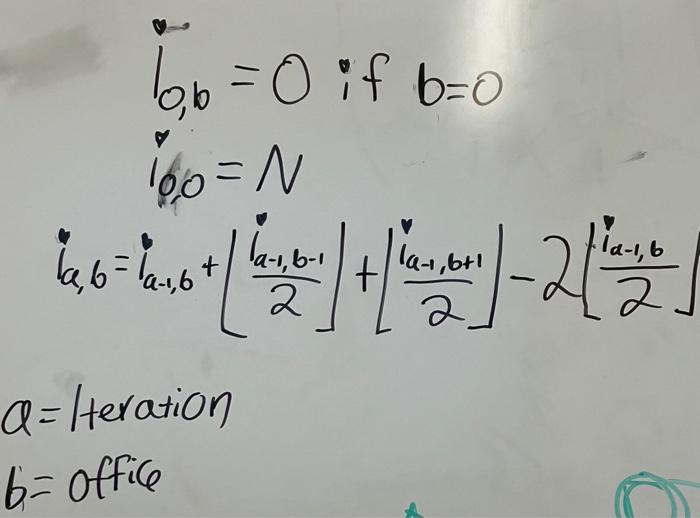 i_{0,b} = 0 if b=0
i_{0,0} = N
i_{a,b} = i_{a-1,b} + ⌊i_{a-1,b-1}/2⌋ + ⌊i_{a-1,b+1}/2⌋ - 2⌊i_{a-1,b}/2⌋
a = Iteration
b = office